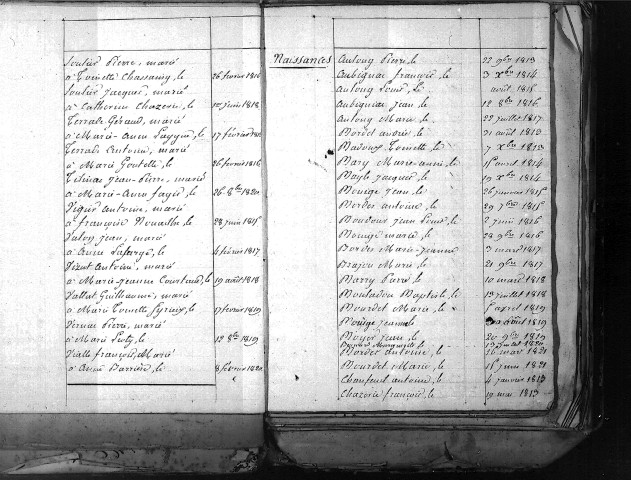 Soulier Pierre, marié
à Toinette Chassaing, le 26 février 1816
Soulier Jacques, marié
à Catherine Chazerie, le 1er juin 1818
Terrade Géraud, marié
à Marie-Anne le 17 février
Terrade Antoine, marié
à Marie Goutelle, le 26 février 1816
Jean-Pierre, marié
à Marie-Anne le 26 8bre 1820
Vigier Antoine, marié
à françoise Nouaille le 28 juin 1815
Valon Jean, marié
à Anne Laforge, le 4 février 1817
Antoine, marié
à Marie-Jeanne Courteaud, le 19 août 1818
Vallat Guillaume, marié
à Marie Toinette le 17 février 1819
Pierre, marié
à Marie le 12 8bre 1819
Vialle françois, Marié
à Anne Barrière, le 8 février 1820
Naissances
Antony Pierre, le 22 9bre 1813
Aubignac françois, le 3 Xbre 1814
Antony Louis, le août 1815
Aubignac Jean, le 12 8bre 1816
Antony Marie, le 22 juillet 1817
Bordes andré, le 21 août 1813
Toinette, le 7 Xbre 1813
Bary Marie-anne, le 1er avril 1814
Bayle Jacques, le 19 Xbre 1814
Bouige Jean, le 26 janvier 1815
Bordes antoine, le 29 7bre 1815
Boudoux Jean Louis, le 2 juin 1816
Bouige marie, le 28 9bre 1816
Bordes Marie-Jeanne 3 mars 1817
Brajou Marie, le 21 9bre 1817
Barry Pierre, le 10 mars 1818
Boutadou Baptiste, le 13 juillet 1818
Bourdet Marie, le avril 1819
Bouige jeanne août 1819
Boyer Jean, le 20 9bre 1819
Marguerite, le 13 juillet 1820
Bordes antoine, le 16 mai 1821
Bourdet Marie, le 1er juin 1821
Chanfeuil antoine, le 4 janvier 1813
Chazerie françois, le 19 mai 1813